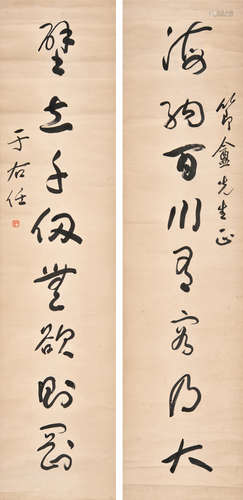 節盦先生正
海納百川有容乃大
壁立千仞無欲則剛
于右任